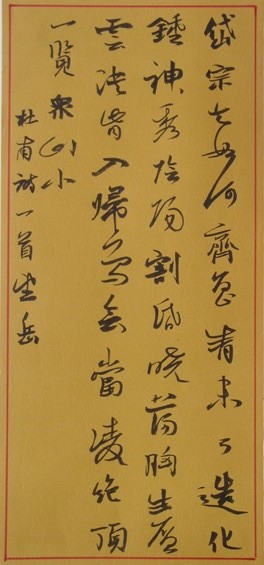 岱宗夫如何齊魯青未了造化
鍾神秀陰陽割昏曉蕩胸生層
雲決眥入歸鳥會當凌絕頂
一覽衆山小
杜甫詩一首望岳